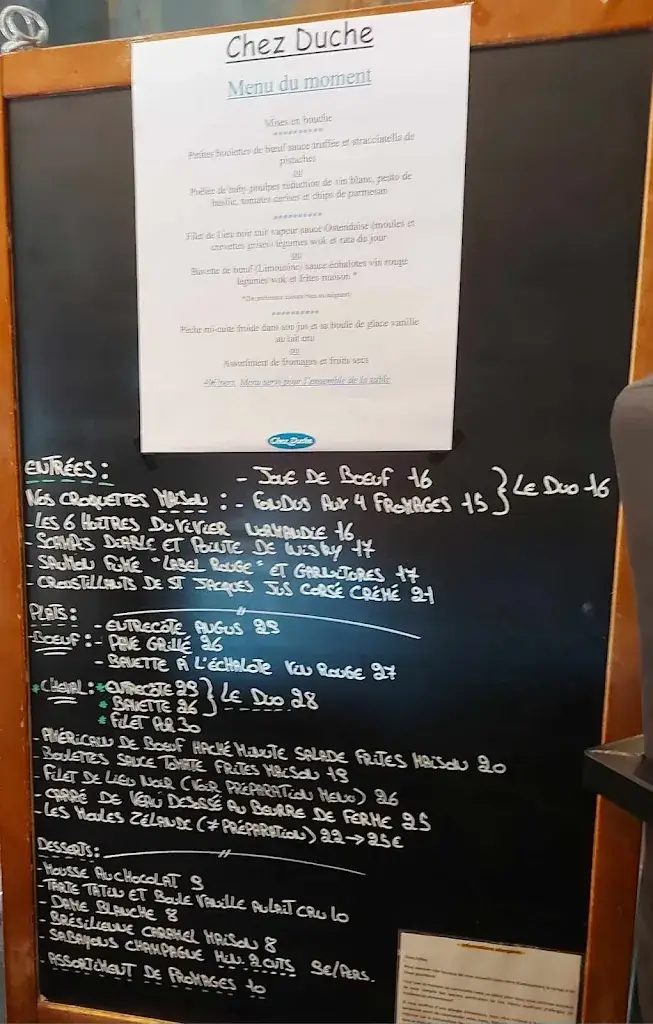 Chez Duche
Menu du moment
Mises en bouche
**********
Petites boulettes de bœuf sauce truffée et straccinella de
pistaches
ou
Poêlée de baby poulpes réduction de vin blanc, pesto de
basilic, tomates cerises et chips de parmesan
**********
Filet de Lieu noir cuit vapeur sauce Ostendaise (moules et
crevettes grises) légumes wok et rata du jour
ou
Bavette de bœuf (Limousine) sauce échalotes vin rouge
légumes wok et frites maison *
**********
Pêche mi-cuite froide dans son jus et sa boule de glace vanille
au lait cru
ou
Assortiment de fromages et fruits secs
Menu servi pour l'ensemble de la table
Chez Duche
ENTRÉES:
NOS CROQUETTES MAISON : - JOUE DE BOEUF 16
- FONDUS AUX 4 FROMAGES 15 } LE DUO 16
- LES 6 HUÎTRES DU VIVIER NORMANDIE 16
- SCAMPIS DIABLE ET POINTE DE WISKY 17
- SAUMON FUMÉ "LABEL ROUGE" ET GARNITURES 17
- CROUSTILLANTS DE ST JACQUES JUS CORSÉ CRÉMÉ 21
PLATS:
- BOEUF: - ENTRECÔTE ANGUS 29
- PAVÉ GRILLÉ 26
- BAVETTE A L'ÉCHALOTE VIN ROUGE 27
* CHEVAL: * ENTRECÔTE 29
* BAVETTE 26 } LE DUO 28
* FILET PUR 30
- AMÉRICAIN DE BOEUF HACHÉ MINUTE SALADE FRITES MAISON 20
- BOULETTES SAUCE TOMATE FRITES MAISON 18
- FILET DE LIEU NOIR (VOIR PRÉPARATION MENU) 26
- CARRÉ DE VEAU DESOSSÉ AU BEURRE DE FERME 25
- LES MOULES ZÉLANDE (≠ PRÉPARATION) 22 → 25€
DESSERTS:
- MOUSSE AU CHOCOLAT 9
- TARTE TATIN ET BOULE VANILLE AU LAIT CRU 10
- DAME BLANCHE 8
- BRÉSILIENNE CARAMEL MAISON 8
- SABAYONS CHAMPAGNE MIN. 2 CVTS 9€/PERS.
- ASSORTIMENT DE FROMAGES 10